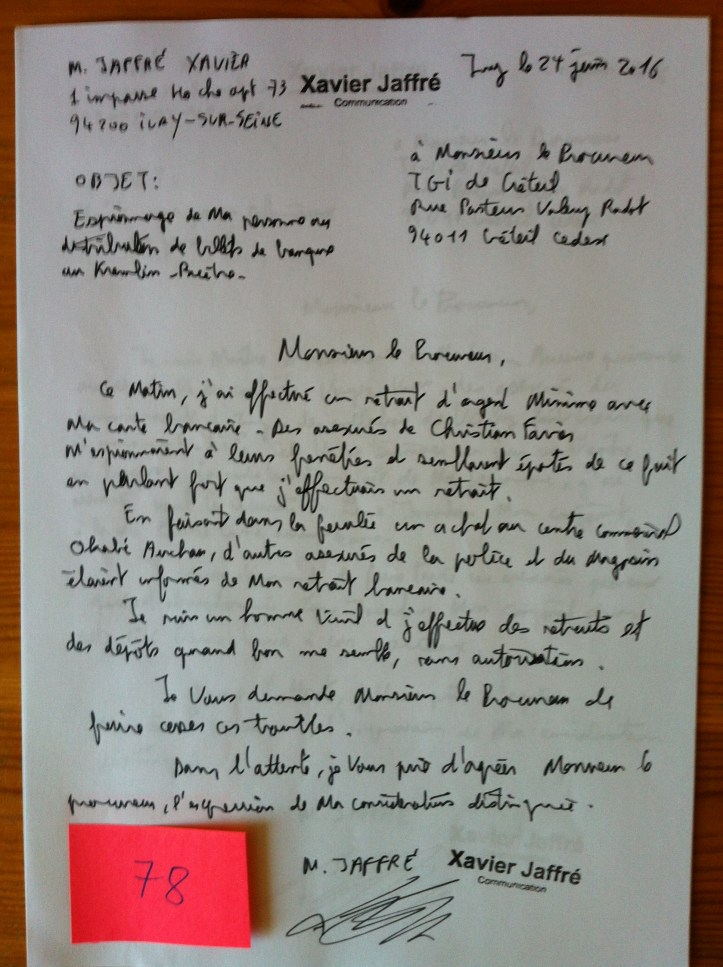 M. JAFFRÉ XAVIER
1 impasse Hoche apt 73
94200 IVRY-SUR-SEINE
Xavier Jaffré
Communication
Ivry le 24 juin 2016
à Monsieur le Procureur
TGI de Créteil
Rue Pasteur Valery Radot
94011 Créteil Cedex
OBJET:
Espionnage de Ma personne au
distributeur de billets de banque
au Kremlin-Bicêtre-
Monsieur le Procureur,
Ce Matin, j'ai effectué un retrait d'argent Minime avec
Ma carte bancaire. Des de Christian Favier
M'espionnaient à leurs fenêtres et semblaient épatés de ce fait
en parlant fort que j'effectuais un retrait.
En faisant dans la foulée un achat au centre commercial
Okabé Auchan, d'autres de la police et du Magasin
étaient informés de Mon retrait bancaire.
Je suis un homme et j'effectue des retraits et
des dépôts quand bon me semble, sans autorisation.
Je Vous demande Monsieur le Procureur de
faire cesser ces troubles.
Dans l'attente, je Vous prie d'agréer Monsieur le
procureur, l'expression de Ma considération distinguée.
M. JAFFRÉ
Xavier Jaffré
Communication
78